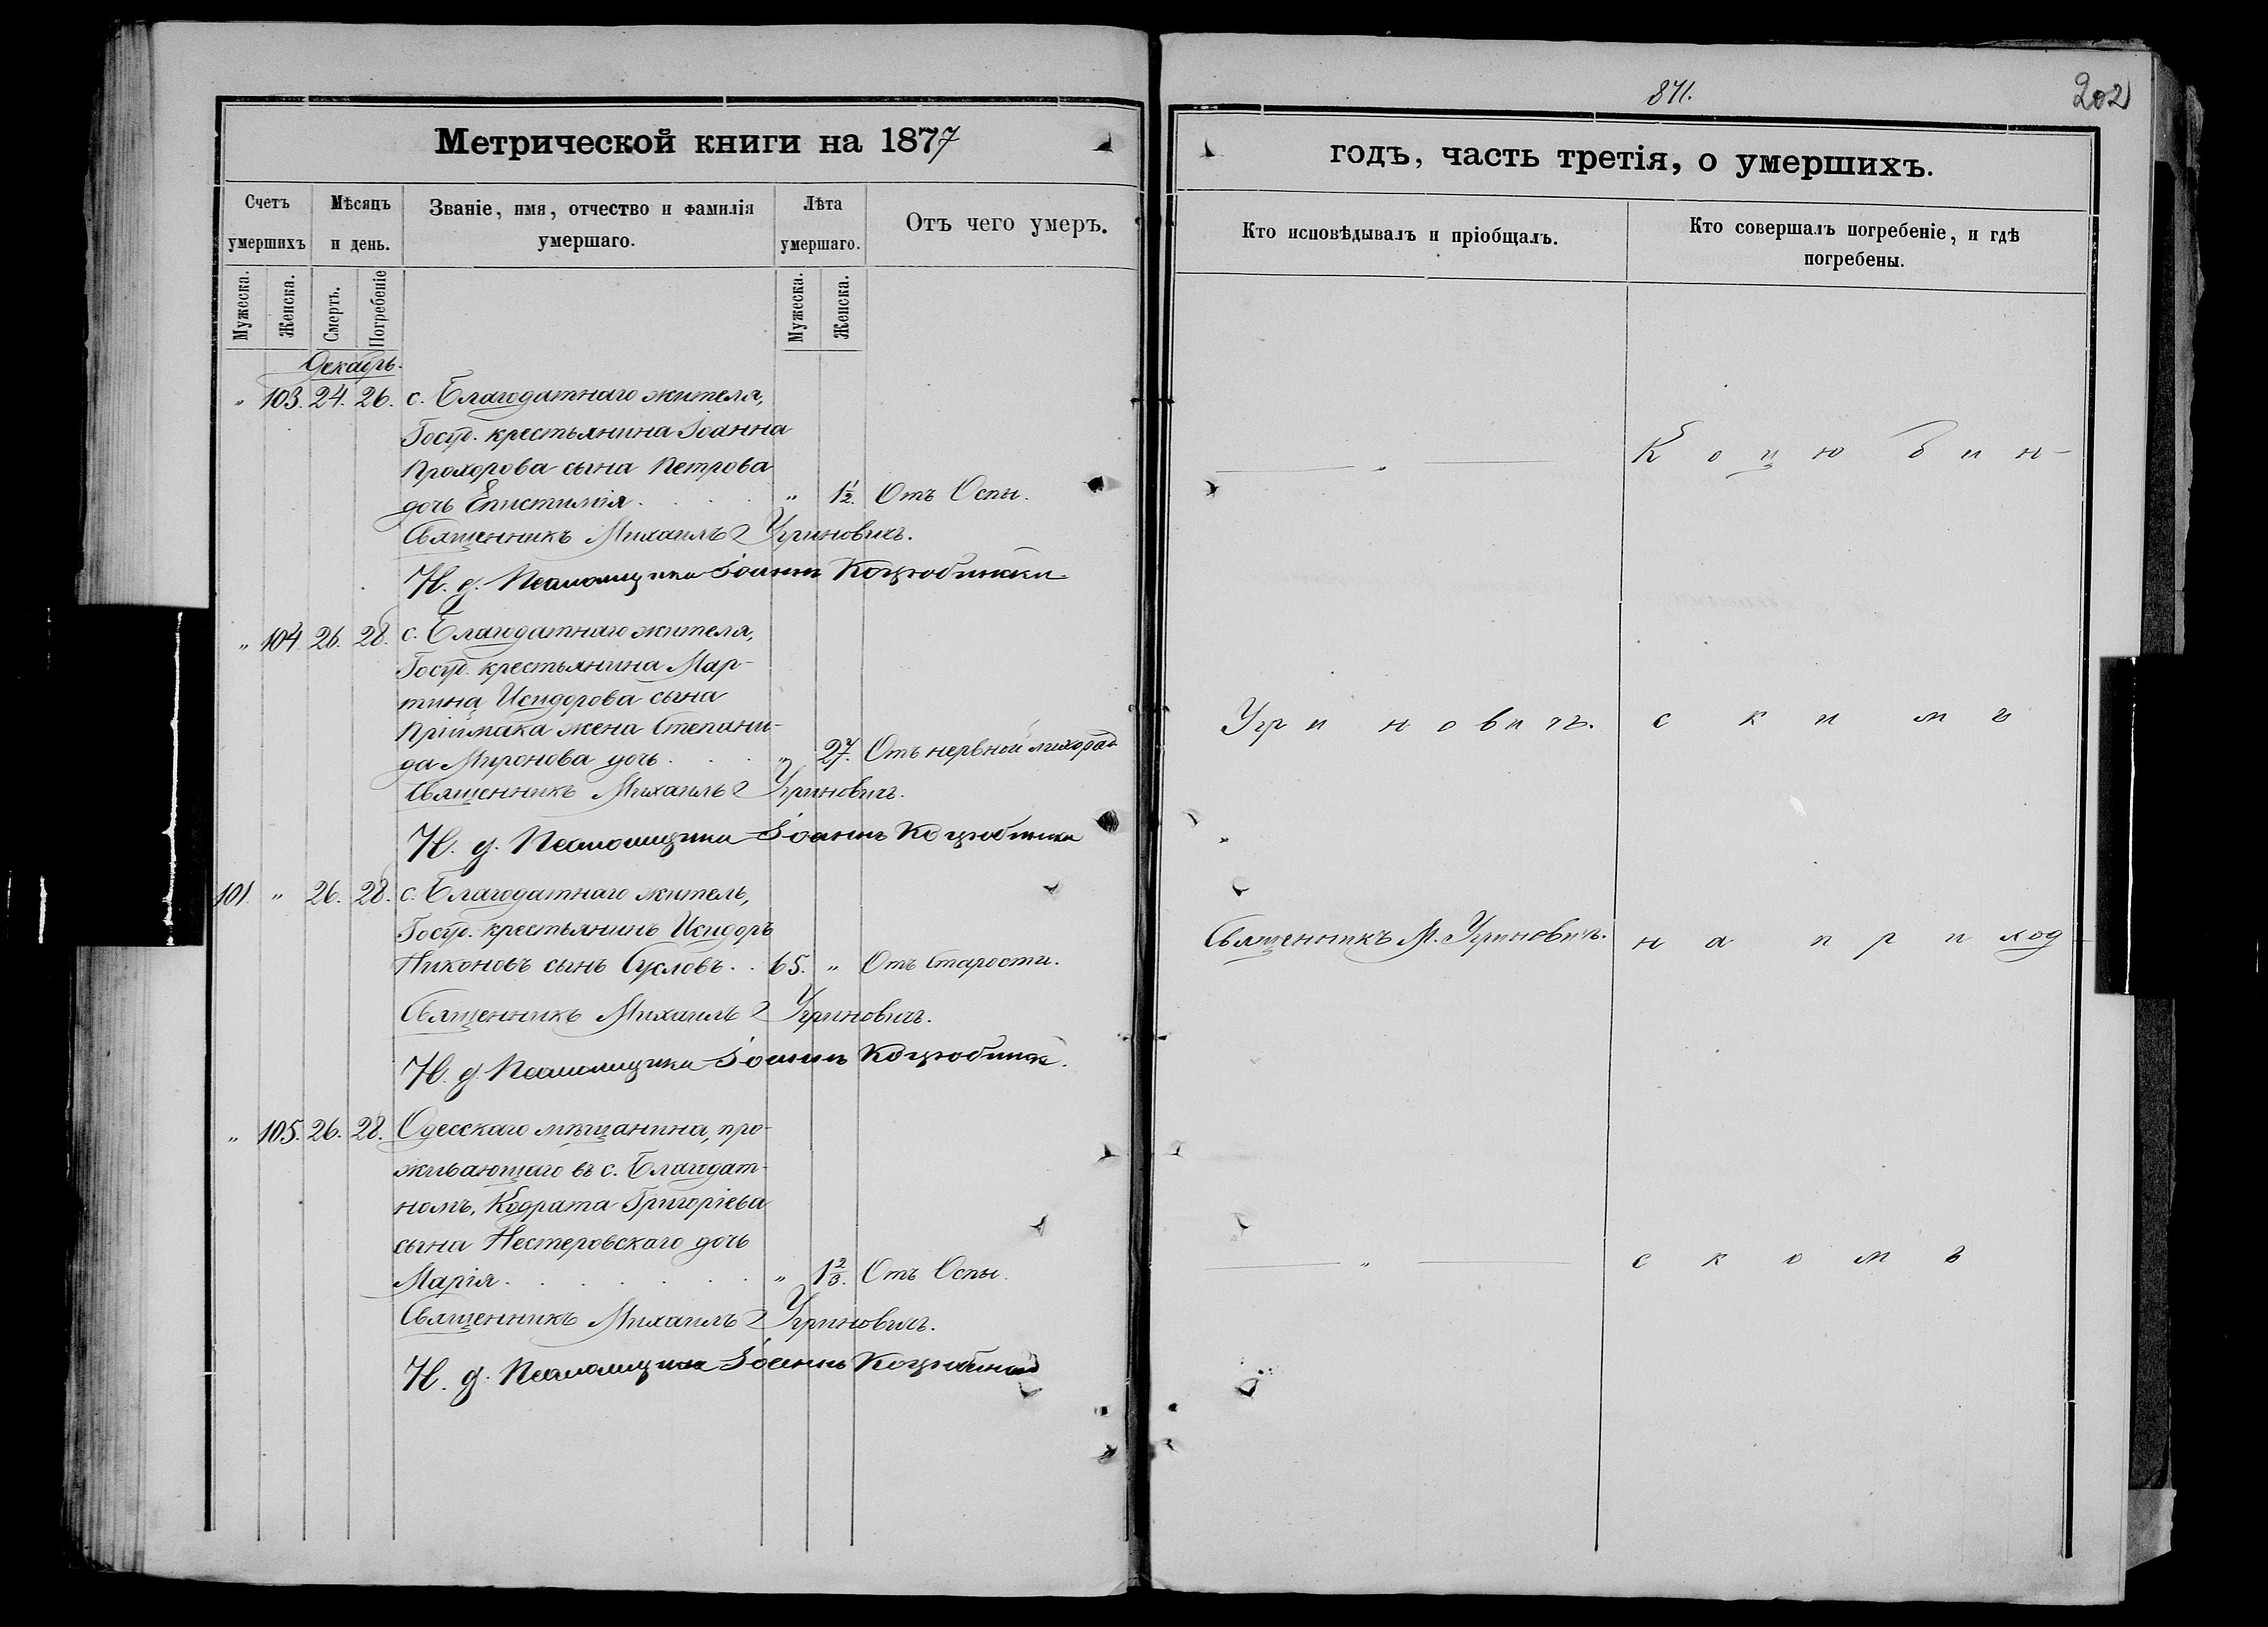 Метрической книги на 1877
Счетъ умершихъ
Мѣсяцъ и день.
Званіе, имя, отчество и фамилія умершаго.
Лѣта умершаго.
Отъ чего умеръ.
Мужеска. Женска. Смерть. Погребеніе Мужеска. Женска.
Декабрь.
" 103. 24. 26. с. Благодатнаго жителя,
Госуд. крестьянина Іоанна
Прохорова сына Петрова
дочь Епистимія. . . . " 1 1/2. Отъ Оспы.
Священникъ Михаилъ Угриновичъ.
И. д. Псаломщика Іоаннъ Коцюбински
" 104. 26. 28. с. Благодатнаго жителя,
Госуд. крестьянина Мар-
тина Исидорова сына
Пріймака жена Степани-
да Миронова дочь. . . " 27. Отъ нервной лихорад
Священникъ Михаилъ Угриновичъ.
И. д. Псаломщика Іоаннъ Коцюбински
101. " 26. 28. с. Благодатнаго житель,
Госуд. крестьянинъ Исидоръ
Никоновъ сынъ Сусловъ. . 65. " Отъ Старости.
Священникъ Михаилъ Угриновичъ.
И. д. Псаломщика Іоаннъ Коцюбински.
" 105. 26. 28. Одесскаго мѣщанина, про-
живающаго въ с. Благодат-
номъ, Кодрата Григоріева
сына Нестеровскаго дочь
Марія. . . . . . " 1 2/3. Отъ Оспы.
Священникъ Михаилъ Угриновичъ.
И. д. Псаломщика Іоаннъ Коцюбински
871.
202
годъ, часть третія, о умершихъ.
Кто исповѣдывалъ и пріобщалъ.
Кто совершалъ погребеніе, и гдѣ погребены.
— " — Коцюбин-
Угриновичъ. скимъ
Священникъ М. Угриновичъ. на приход
— " — скомъ